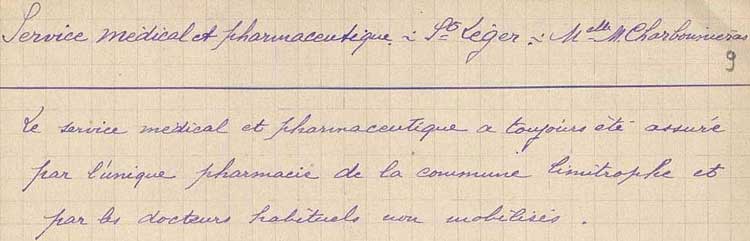 Service médical et pharmaceutique. St Léger. Melle M. Charbonnieras
9
Le service médical et pharmaceutique a toujours été assuré
par l'unique pharmacie de la commune limitrophe et
par les docteurs habituels non mobilisés.